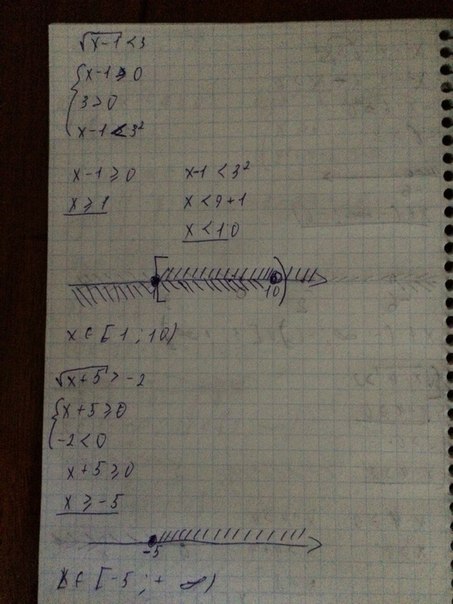 √x-1 < 3
{ x-1 ≥ 0
3 > 0
x-1 < 3²
x-1 ≥ 0 x-1 < 3²
x ≥ 1 x < 9+1
x < 10
[ 10 )
x ∈ [1 ; 10)
√x+5 > -2
{ x+5 ≥ 0
-2 < 0
x+5 ≥ 0
x ≥ -5
-5
x ∈ [-5 ; +∞)